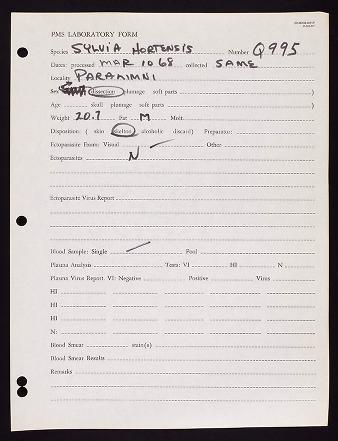 PMS LABORATORY FORM
Species SYLVIA HORTENSIS Number Q995
Dates: processed MAR 10 68 collected SAME
Locality PARAMIMNI
Sex dissection plumage soft parts )
Age skull plumage soft parts )
Weight 20.7 Fat M Molt
Disposition: ( skin skeleton alcoholic discard) Preparator:
Ectoparasite Exam: Visual Other
Ectoparasites N
Ectoparasite Virus Report
Blood Sample: Single Pool
Plasma Analysis Tests: VI HI N
Plasma Virus Report. VI: Negative Positive Virus
HI
HI
HI
N:
Blood Smear stain(s)
Blood Smear Results
Remarks